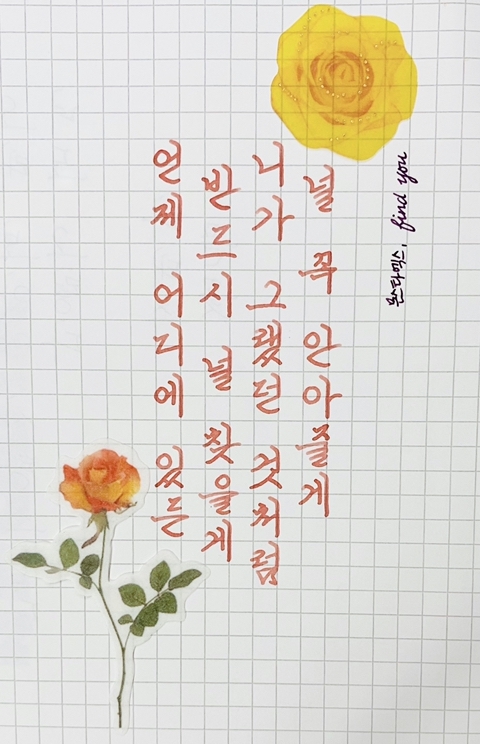 언제 어디에 있든
반드시 널 찾을게
니가 그랬던 것처럼
널 꼭 안아줄게
몬스타엑스, find you